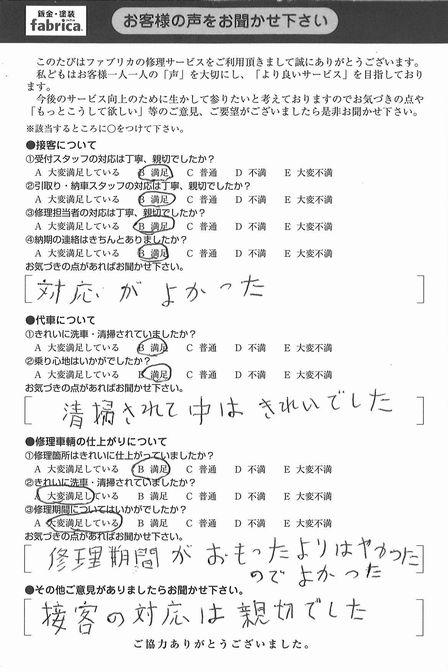 鈑金・塗装
fabrica.
お客様の声をお聞かせ下さい
このたびはファブリカの修理サービスをご利用頂きまして誠にありがとうございます。
私どもはお客様一人一人の「声」を大切にし、「より良いサービス」を目指しており
ます。
今後のサービス向上のために生かして参りたいと考えておりますのでお気づきの点や
「もっとこうして欲しい」等のご意見、ご要望がございましたら是非お聞かせ下さい。
※該当するところに○をつけて下さい。
●接客について
①受付スタッフの対応は丁寧、親切でしたか?
A 大変満足している B 満足 C 普通 D 不満 E 大変不満
②引取り・納車スタッフの対応は丁寧、親切でしたか?
A 大変満足している B 満足 C 普通 D 不満 E 大変不満
③修理担当者の対応は丁寧、親切でしたか?
A 大変満足している B 満足 C 普通 D 不満 E 大変不満
④納期の連絡はきちんとありましたか?
A 大変満足している B 満足 C 普通 D 不満 E 大変不満
お気づきの点があればお聞かせ下さい。
対応がよかった
●代車について
①きれいに洗車・清掃されていましたか?
A 大変満足している B 満足 C 普通 D 不満 E 大変不満
②乗り心地はいかがでしたか?
A 大変満足している B 満足 C 普通 D 不満 E 大変不満
お気づきの点があればお聞かせ下さい。
清掃されて中はきれいでした
●修理車輌の仕上がりについて
①修理箇所はきれいに仕上がっていましたか?
A 大変満足している B 満足 C 普通 D 不満 E 大変不満
②きれいに洗車・清掃されていましたか?
A 大変満足している B 満足 C 普通 D 不満 E 大変不満
③修理期間についてはいかがでしたか?
A 大変満足している B 満足 C 普通 D 不満 E 大変不満
お気づきの点があればお聞かせ下さい。
修理期間がおもったよりはやかった
のでよかった
●その他ご意見がありましたらお聞かせ下さい。
接客の対応は親切でした
ご協力ありがとうございました。